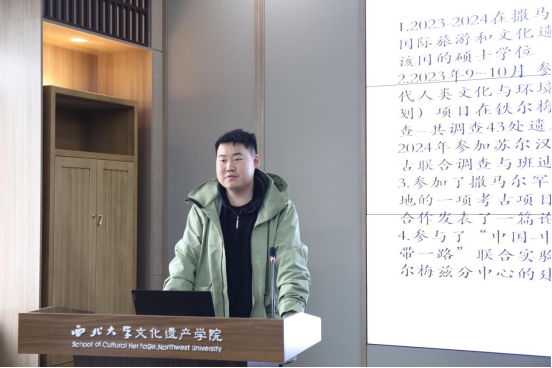 1.2023-2024在撒马
国际旅游和文化遗
该国的硕士学位
2.2023年9-10月 参
代人类文化与环境
划）项目在铁尔梅
查-共调查43处遗
2024年参加苏尔汉
古联合调查与班过
3.参加了撒马尔罕
地的一项考古项目
合作发表了一篇论
4.参与了“中国-中
带一路”联合实验
尔梅兹分中心的建
西北大学文化遗产学院
School of Cultural Heritage,Northwest University